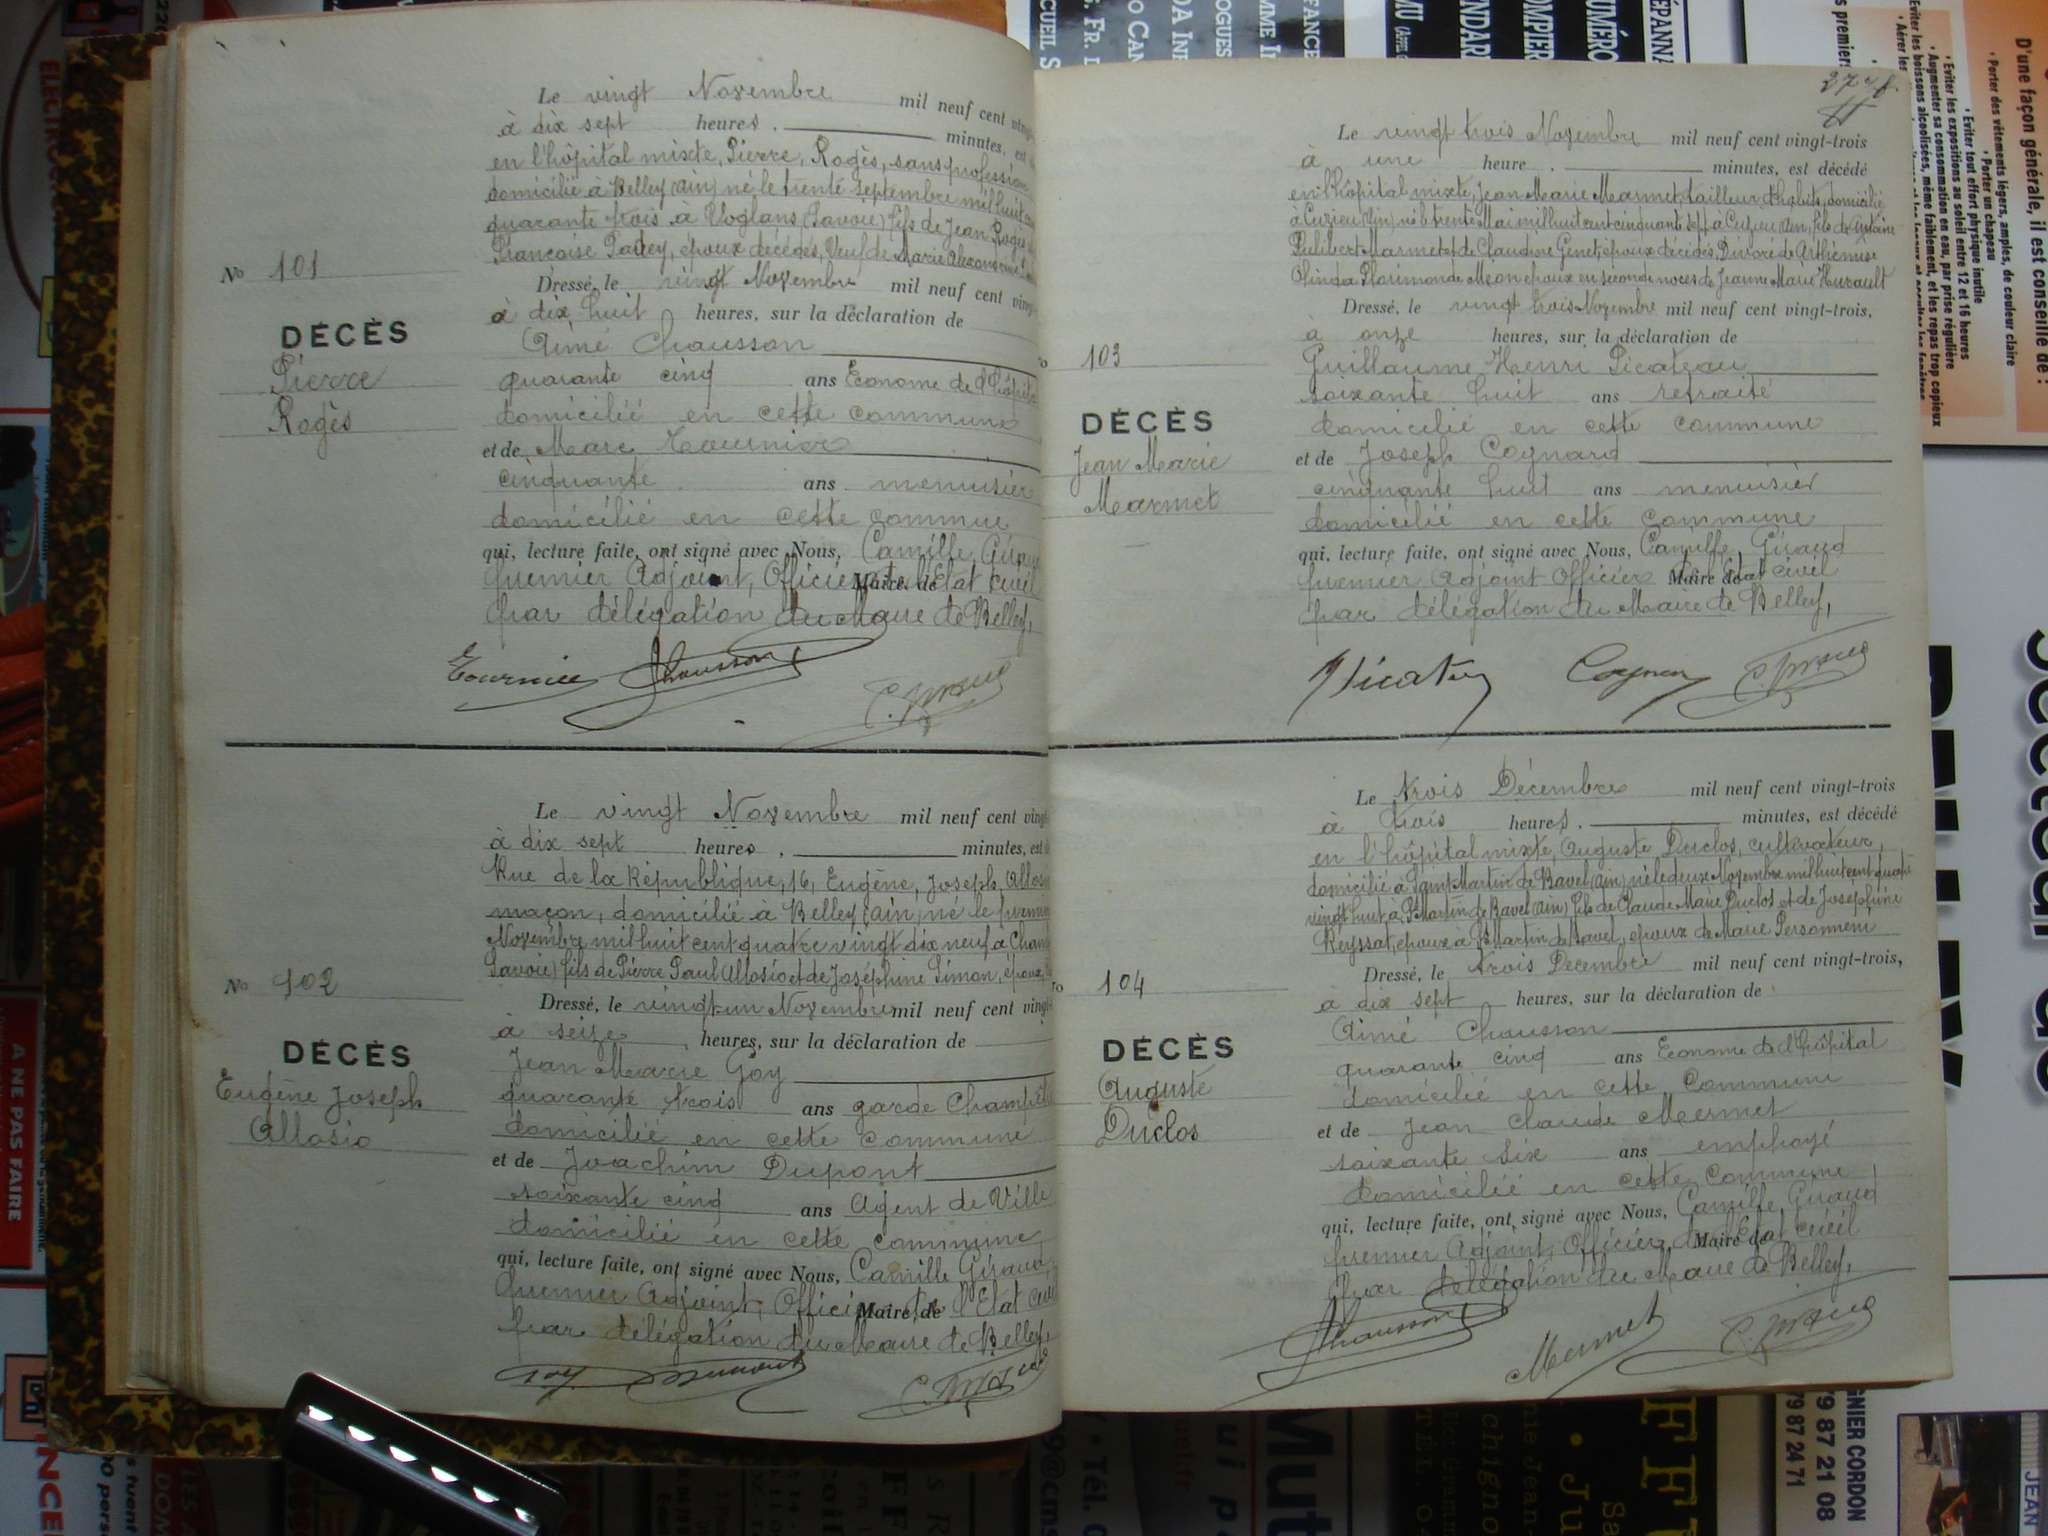 Le vingt Novembre mil neuf cent vingt
à dix sept heures, minutes, est
en l'hôpital mixte, Pierre, Rogès, sans profession
domicilié à Belley (Ain) né le trente Septembre mil huit cent
quarante trois à Voglans (Savoie) fils de Jean Rogès
Françoise époux décédés, Veuf de Marie
No 101
Dressé, le vingt Novembre mil neuf cent vingt
à dix huit heures, sur la déclaration de
DÉCÈS
Pierre
Rogès
Aimé Chausson
quarante cinq ans Econome de l'hôpital
domicilié en cette commune
et de Marc Tournier
cinquante ans menuisier
domicilié en cette commue
qui, lecture faite, ont signé avec Nous, Camille Giraud
premier Adjoint, Officier de l'Etat civil Maire de
par délégation du Maire de Belley,
Tournier Chausson C. Giraud
Le vingt Novembre mil neuf cent vingt
à dix sept heures, minutes, est
Rue de la République, 16, Eugène, Joseph, Allosio
maçon, domicilié à Belley (Ain) né le premier
Novembre mil huit cent quatre vingt dix neuf à
Savoie) fils de Pierre Paul Allosio et de Joséphine Simon, époux
No 102
Dressé, le vingt un Novembre mil neuf cent vingt
à seize heures, sur la déclaration de
DÉCÈS
Eugène Joseph
Allosio
Jean Marie Goy
quarante trois ans garde Champêtre
domicilié en cette commune
et de Joachim Dupont
soixante cinq ans Agent de Ville
domicilié en cette commune
qui, lecture faite, ont signé avec Nous, Camille Giraud,
premier Adjoint, Officier de l'Etat civil Maire de
par délégation du Maire de Belley,
Goy Dupont C. Giraud
Le vingt trois Novembre mil neuf cent vingt-trois
à une heure. minutes, est décédé
en l'hôpital mixte, Jean Marie Marmet, tailleur d'habits, domicilié
à Cuzieu (Ain) né le trente Mai mil huit cent cinquante sept à Cuzieu (Ain, fils de Antoine
Philibert Marmet et de Claudine Genet, époux décédés, Divorcé de Arthémise
Olinda Pharimonde Meon époux en seconde noces de Jeanne Marie Hurault
Dressé, le vingt trois Novembre mil neuf cent vingt-trois,
à onze heures, sur la déclaration de
103
DÉCÈS
Jean Marie
Marmet
Guillaume Henri Picateau
soixante huit ans retraité
domicilié en cette commune
et de Joseph Cognard
cinquante huit ans menuisier
domicilié en cette commune
qui, lecture faite, ont signé avec Nous, Camille, Giraud
premier Adjoint Officier de l'Etat civil Maire de
par délégation du Maire de Belley,
Picateau Cognard C. Giraud
Le trois Décembre mil neuf cent vingt-trois
à trois heures, minutes, est décédé
en l'hôpital mixte, Auguste Duclos, cultivateur,
domicilié à Saint Martin de Bavel (Ain) né le deux Novembre mil huit cent quatre
vingt huit, à St Martin de Bavel (Ain) fils de Claude Marie Duclos et de Joséphine
Reyssat, époux à St Martin de Bavel, époux de Marie Personneni
Dressé, le trois Décembre mil neuf cent vingt-trois,
à dix sept heures, sur la déclaration de
104
DÉCÈS
Auguste
Duclos
Aimé Chausson
quarante cinq ans Econome de l'hôpital
domicilié en cette commune
et de Jean Claude Mermet
soixante six ans employé
domicilié en cette commune
qui, lecture faite, ont signé avec Nous, Camille, Giraud
premier Adjoint, Officier de l'Etat civil Maire de
par délégation du Maire de Belley,
Chausson Mermet C. Giraud
D'une façon générale, il est conseillé de :
• Porter des vêtements légers, amples, de couleur claire
• Porter un chapeau
• Eviter tout effort physique inutile
• Eviter les expositions au soleil entre 12 et 16 heures
• Augmenter sa consommation en eau, par prise régulière
• Aérer les
A NE PAS FAIRE
GNIER CORDON
79 87 21 08
79 87 24 71
JEAN